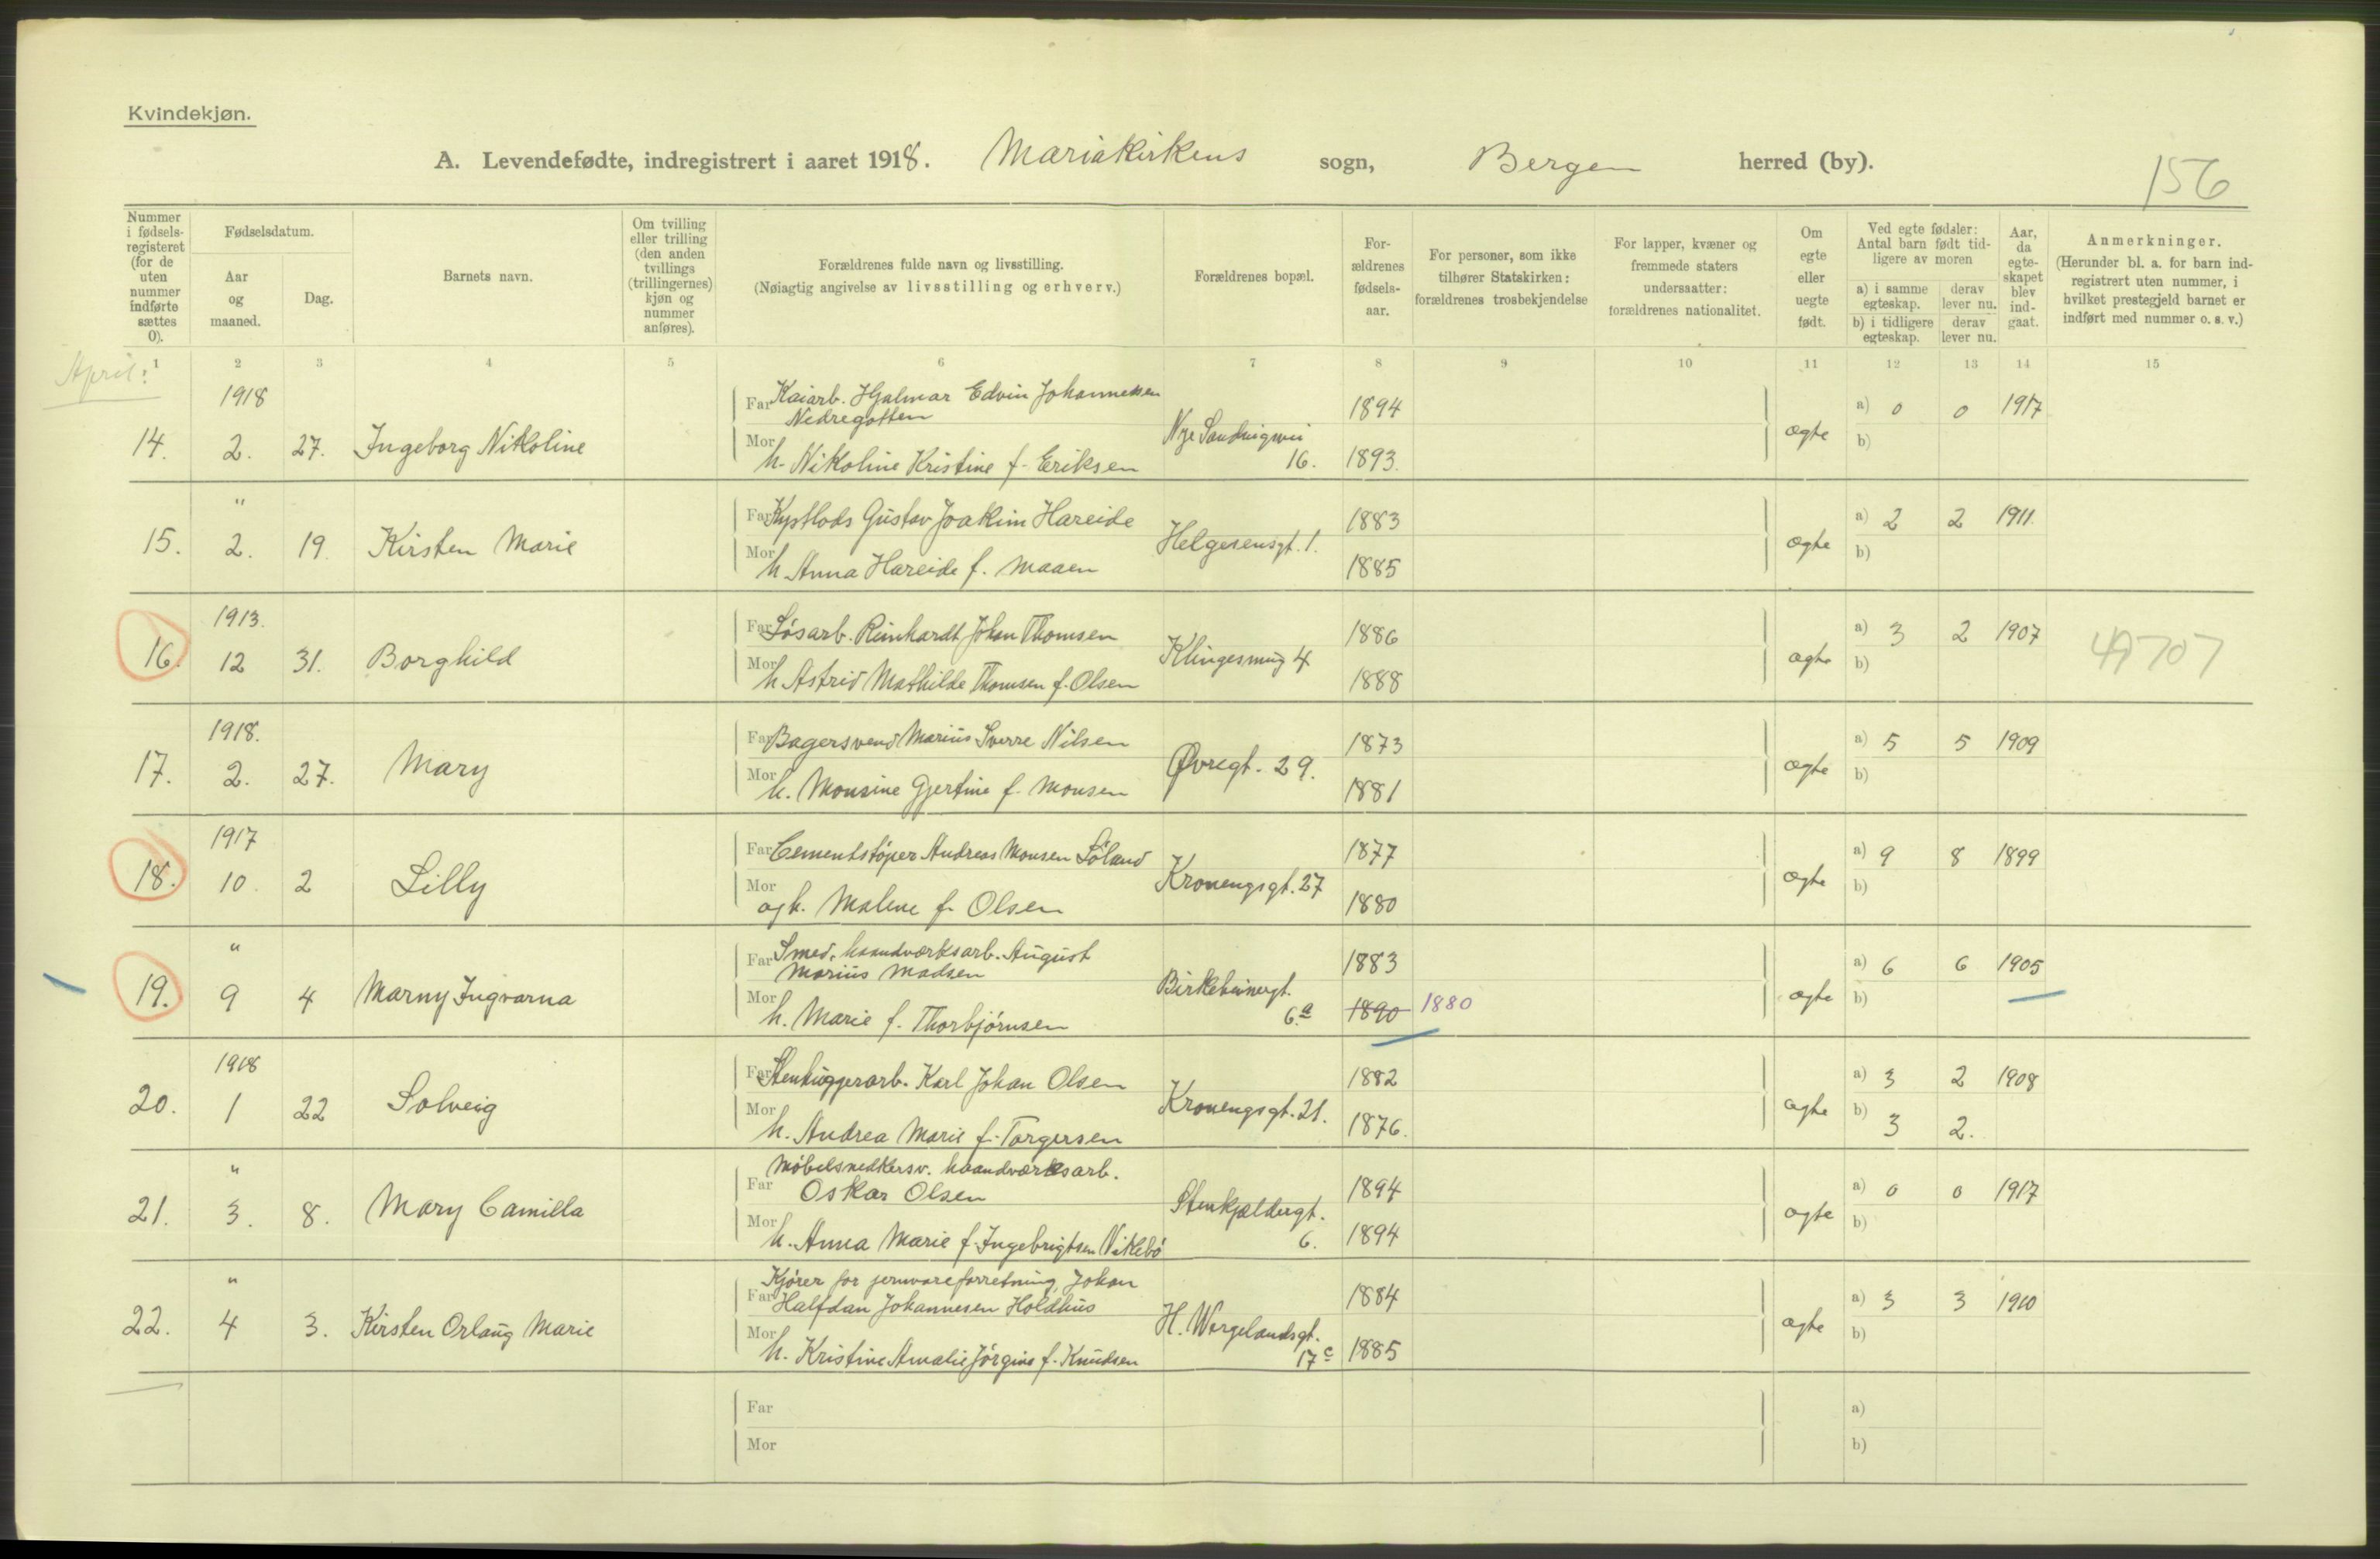 Kvindekjøn.
A. Levendefødte, indregistrert i aaret 1918. Mariakirkens sogn, Bergen herred (by).
156
Nummer i fødsels-registeret (for de uten nummer indførte sættes 0).
Fødselsdatum.
Aar og maaned.
Dag.
Barnets navn.
Om tvilling eller trilling (den anden tvillings (trillingernes) kjøn og nummer anføres).
Forældrenes fulde navn og livsstilling.
(Nøiagtig angivelse av livsstilling og erhverv.)
Forældrenes bopæl.
For-ældrenes fødsels-aar.
For personer, som ikke tilhører Statskirken: forældrenes trosbekjendelse
For lapper, kvæner og fremmede staters undersaatter: forældrenes nationalitet.
Om egte eller uegte født.
Ved egte fødsler: Antal barn født tid-ligere av moren
a) i samme egteskap.
derav lever nu.
b) i tidligere egteskap.
derav lever nu.
Aar, da egte-skapet blev ind-gaat.
Anmerkninger.
(Herunder bl. a. for barn ind-registrert uten nummer, i hvilket prestegjeld barnet er indført med nummer o. s. v.)
April:
1 2 3 4 5 6 7 8 9 10 11 12 13 14 15
1918
Far Kaiarb. Hjalmar Edvin Johannessen
Nedregotten
1894
a) 0 0 1917
14. 2. 27. Ingeborg Nikoline
Mor h. Nikoline Kristine f. Eriksen
Nye Sandvigsvei
16. 1893.
ægte b)
"
Far Kystlods Gustav Joakim Hareide
1883
a) 2 2 1911.
15. 2. 19. Kirsten Marie
Helgesensgt. 1.
ægte b)
Mor h. Anna Hareide f. Maaen
1885
1913.
Far Løsarb. Reinhardt Johan Thomsen
1886
a) 3 2 1907
16. 12 31. Borghild
Klingesmug 4
ægte b)
49707
Mor h. Astrid Mathilde Thomsen f. Olsen
1888
1918.
Far Bagersvend Marius Sverre Nilsen
1873
a) 5 5 1909
17. 2. 27. Mary
Øvregt. 29.
ægte b)
Mor h. Monsine Gjertine f. Monsen
1881
1917
Far Cementstøper Andreas Monsen Söland
1877
a) 9 8 1899
18. 10. 2 Lilly
Kronengsgt. 27
ægte b)
Mor og h. Malene f. Olsen
1880
"
Far Smed, haandværksarb. August
Marius Madsen
1883
a) 6 6 1905
19. 9 4 Marny Ingvarna
Birkebeinergt.
6a
ægte b)
Mor h. Marie f. Thorbjørnsen
1890 1880
1918
Far Stenhuggerarb. Karl Johan Olsen
1882
a) 3 2 1908
20. 1 22 Solveig
Kronengsgt. 21.
ægte b) 3 2.
Mor h. Andrea Marie f. Torgersen
1876.
"
Møbelsnedkersv. haandværksarb.
Far Oskar Olsen
1894
a) 0 0 1917
21. 3. 8. Mary Camilla
Stenkjældergt.
6.
ægte b)
Mor h. Anna Marie f. Ingebrigtsen Viklebø
1894
"
Kjører for jernvareforretning, Johan
Far Halfdan Johannesen Holdhus
1884
a) 3 3 1910
22. 4 3. Kirsten Orlaug Marie
H. Wergelandsgt.
17c
ægte b)
Mor h. Kristine Amalie Jørgine f. Knudsen
1885
Far
a)
Mor
b)